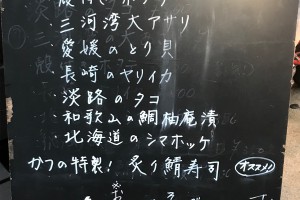 三河湾大アサリ
・愛媛のとり貝
・長崎のヤリイカ
・淡路のタコ
・和歌山の鯛柚庵漬
・北海道のシマホッケ
かつの特製！炙り鯖寿司 オススメ！